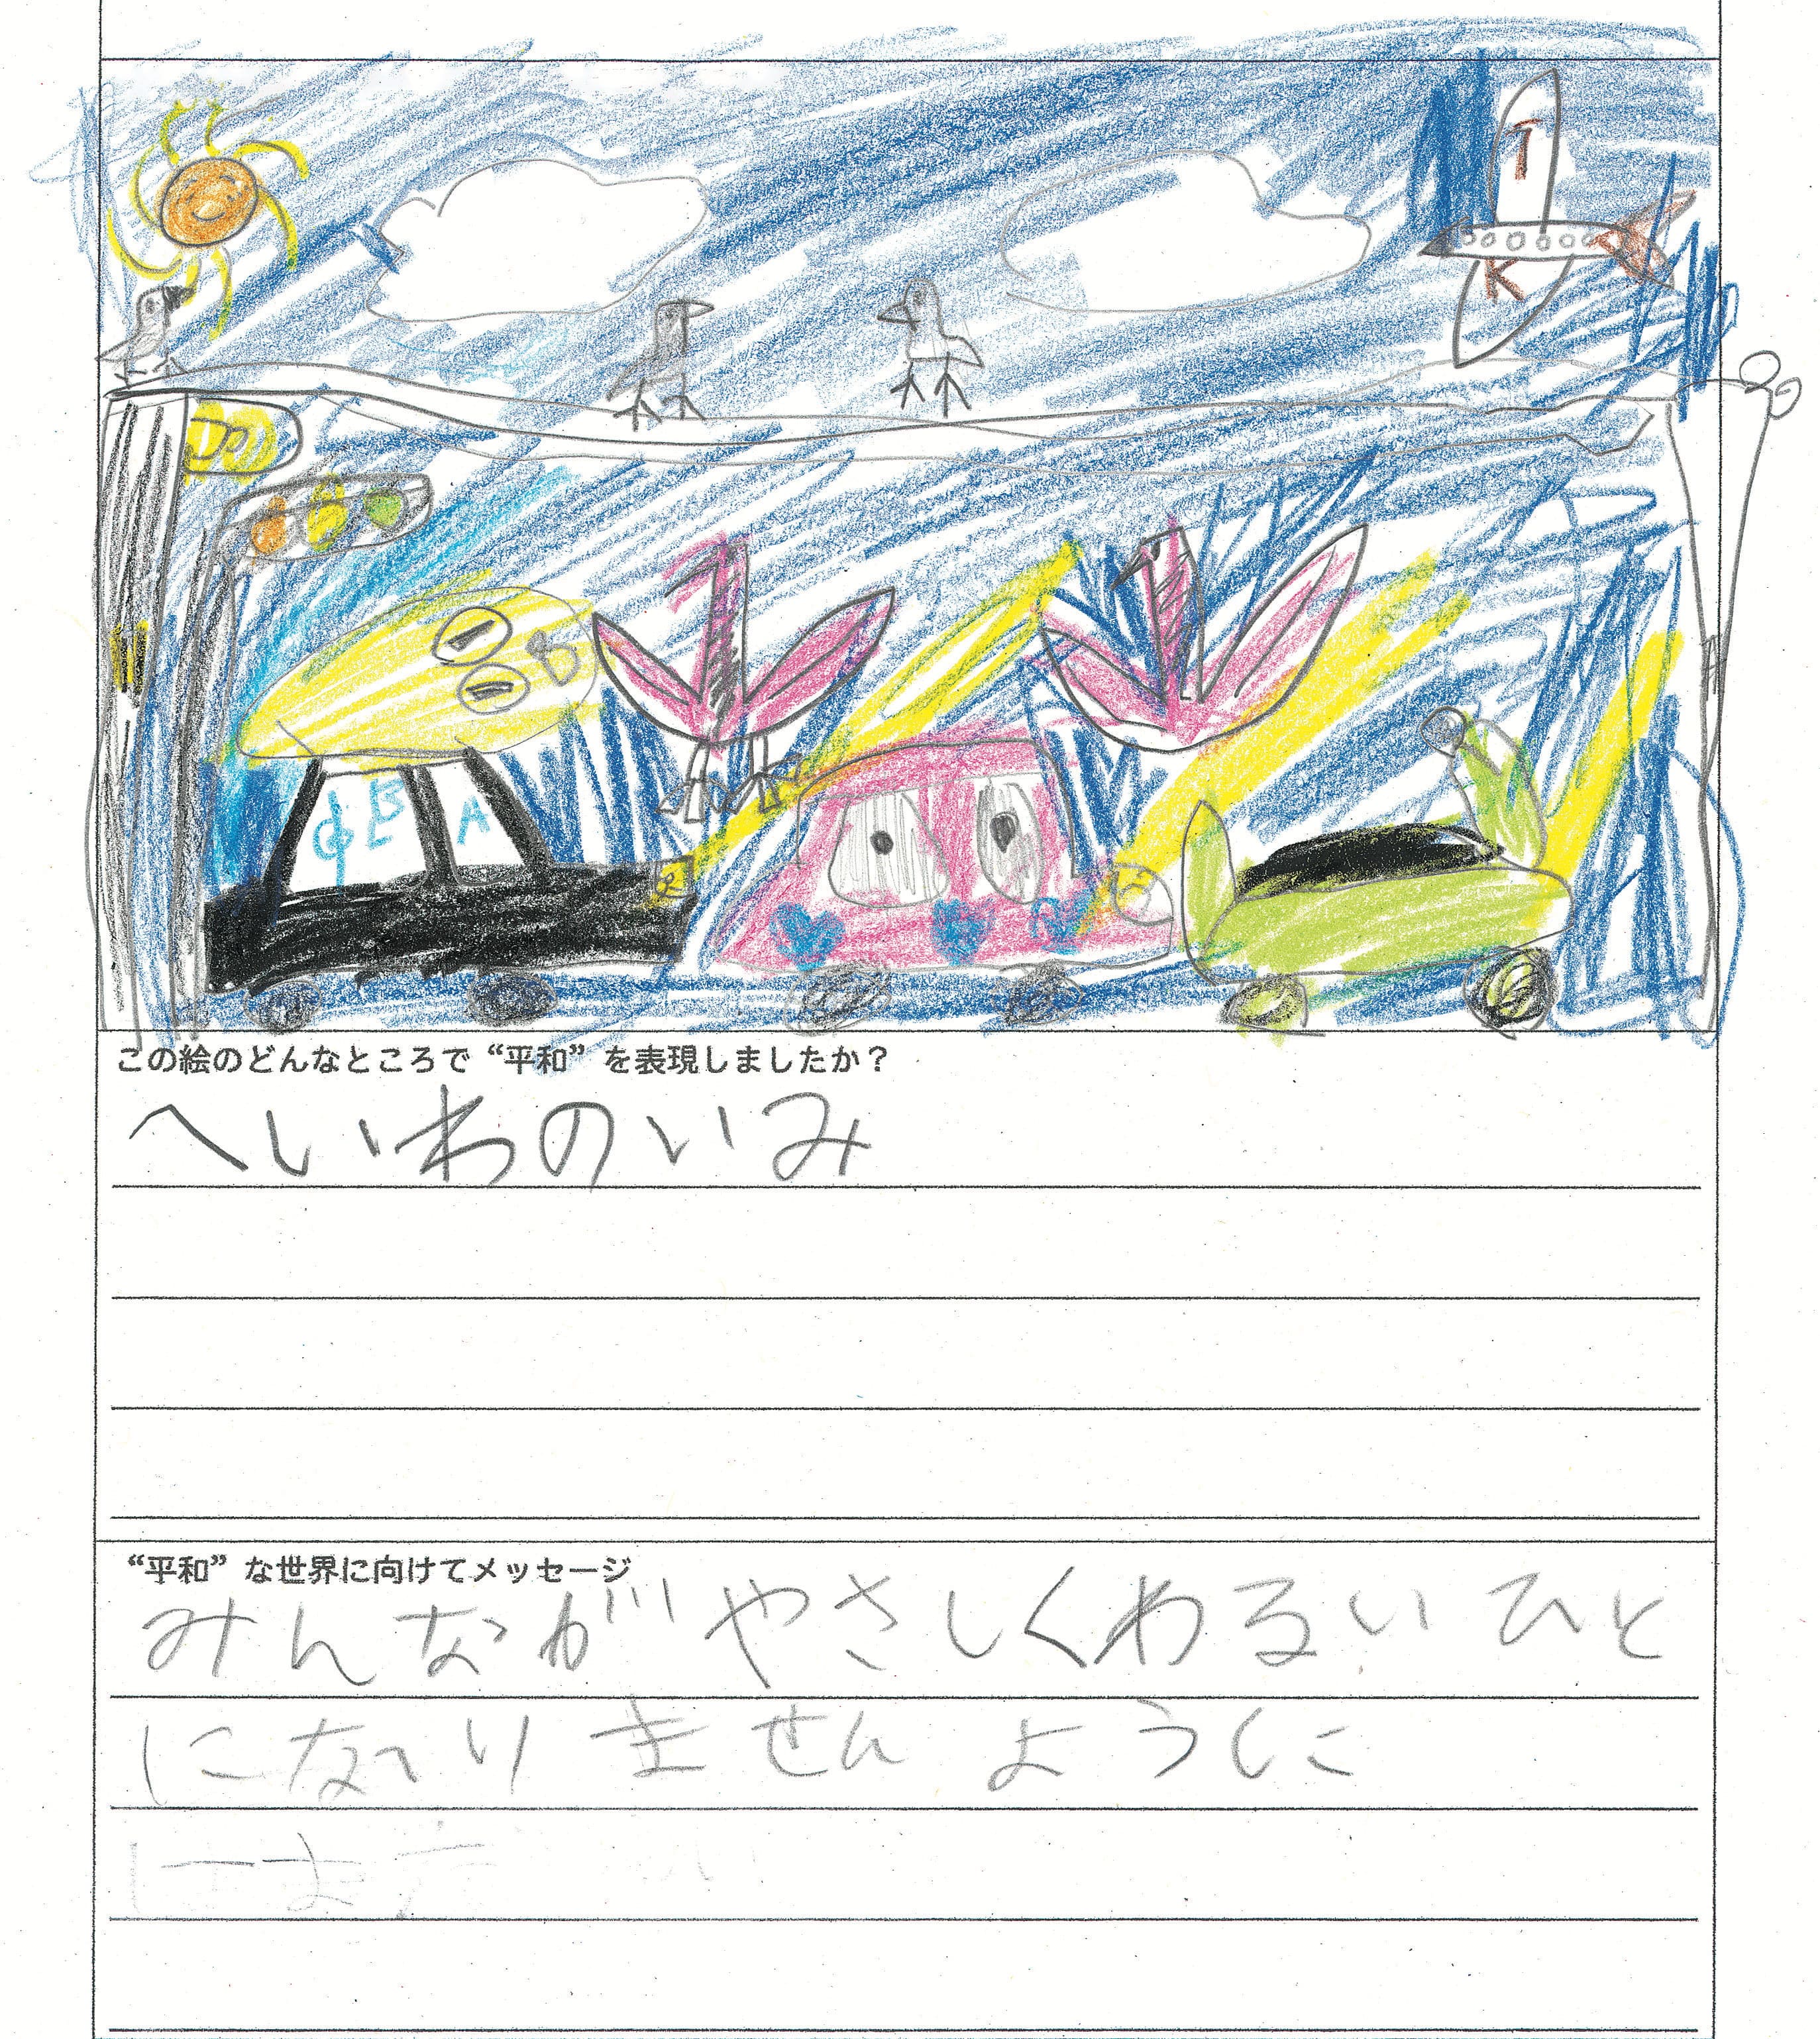 T
K
B
A
この絵のどんなところで“平和”を表現しましたか？
へいわのいみ
“平和”な世界に向けてメッセージ
みんながやさしくわるいひと
になりませんように